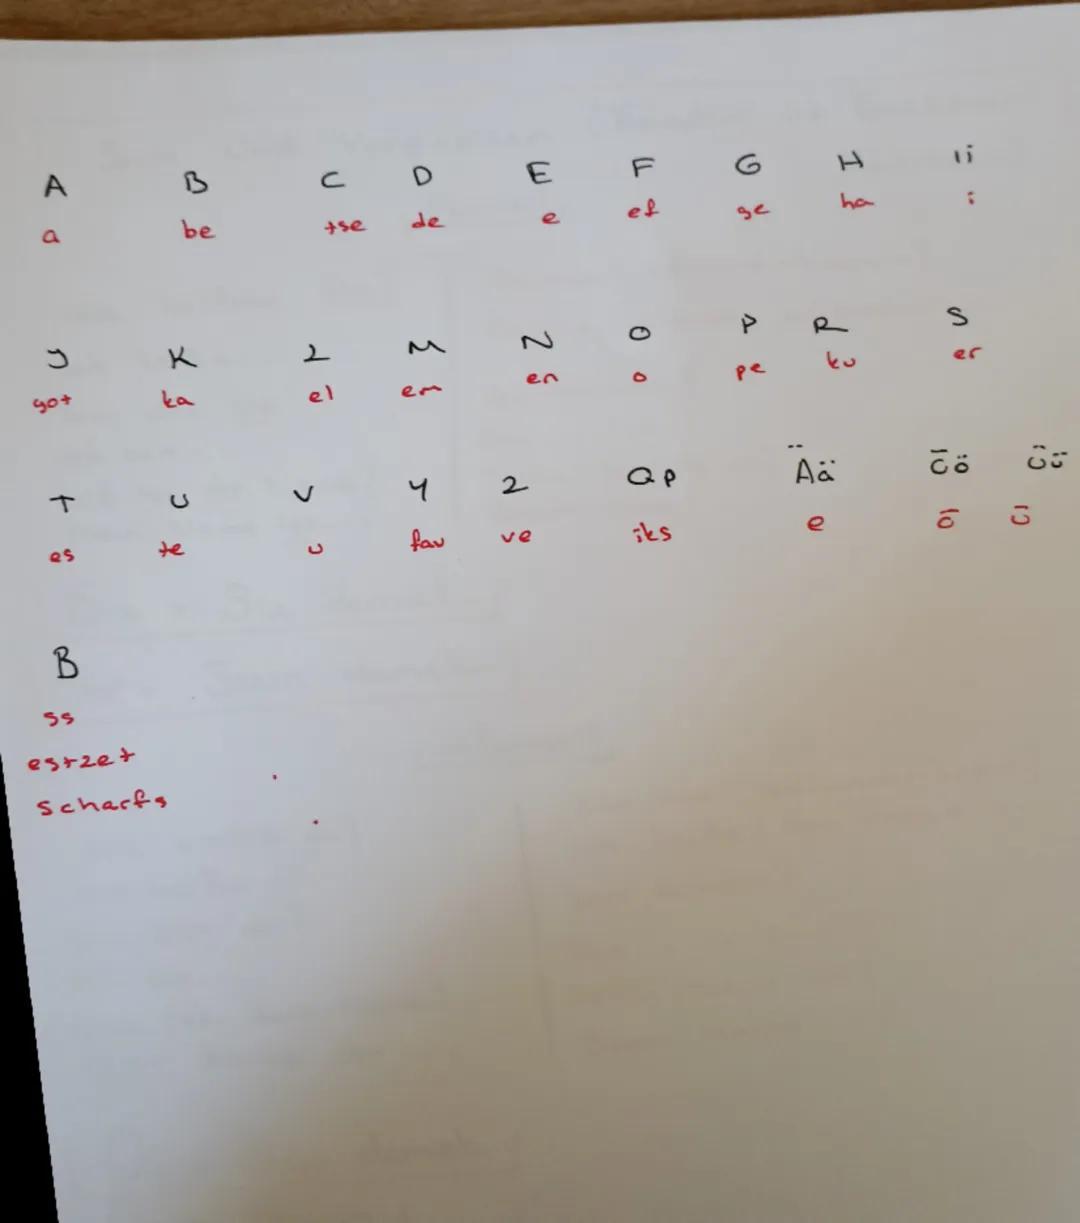 A B C D E F G H Ii
a be tse de e ef ge ha i
J K L M N O P R S
yot ka el em en o pe ku er
T U V Y Z Qp Ää Öö Üü
es te u fav ve iks e ö ü
ß
ss
estzet
scharfs